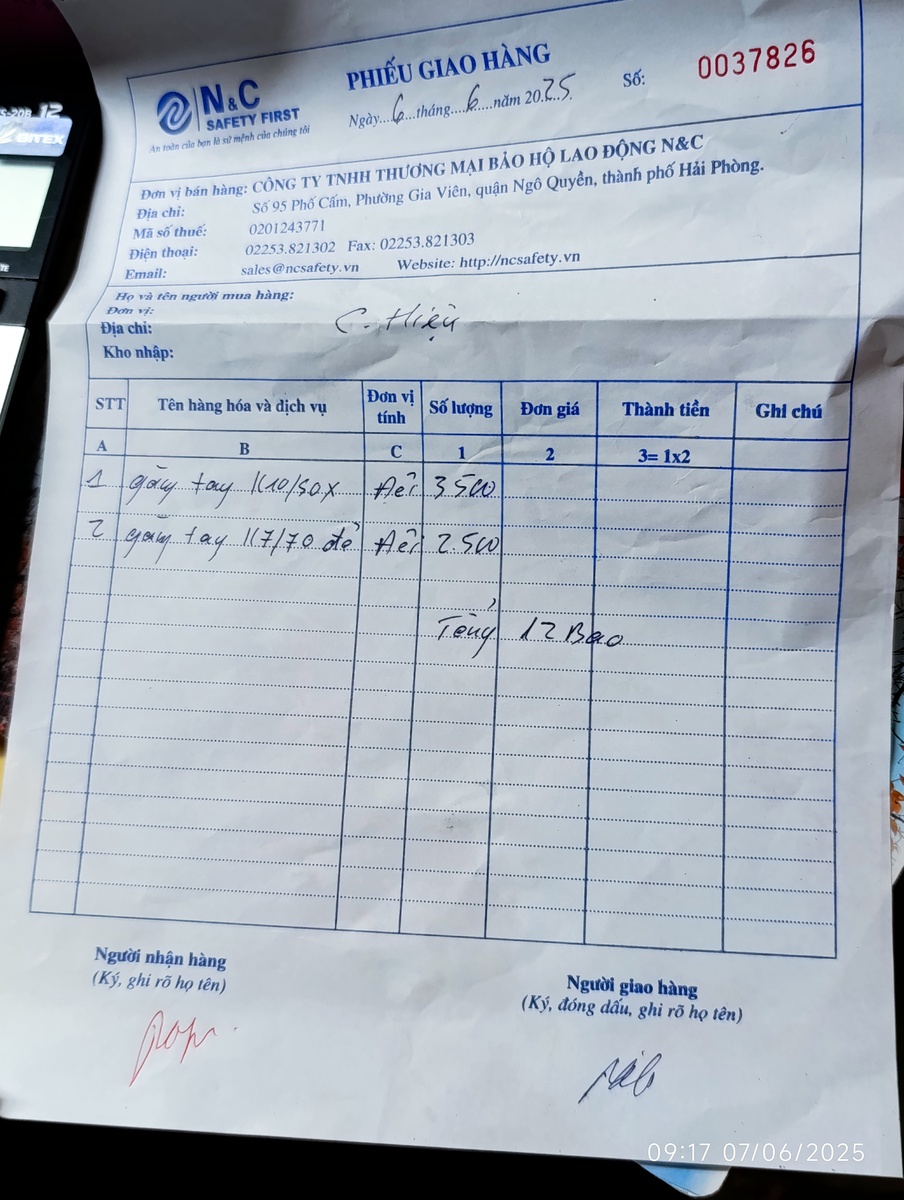 N&C
SAFETY FIRST
An toàn của bạn là sứ mệnh của chúng tôi
PHIẾU GIAO HÀNG
Ngày...6...tháng...6...năm 2025
Số: 0037826
Đơn vị bán hàng: CÔNG TY TNHH THƯƠNG MẠI BẢO HỘ LAO ĐỘNG N&C
Địa chỉ: Số 95 Phố Cấm, Phường Gia Viên, quận Ngô Quyền, thành phố Hải Phòng.
Mã số thuế: 0201243771
Điện thoại: 02253.821302 Fax: 02253.821303
Email: sales@ncsafety.vn Website: http://ncsafety.vn
Họ và tên người mua hàng:
Đơn vị:
Địa chỉ: C. Hiệu
Kho nhập:
STT Tên hàng hóa và dịch vụ Đơn vị tính Số lượng Đơn giá Thành tiền Ghi chú
A B C 1 2 3= 1x2
1 găng tay K10/50X Đôi 3500
2 găng tay K7/70 để Đôi 2.500
Tổng 12 Bao
Người nhận hàng
(Ký, ghi rõ họ tên)
Người giao hàng
(Ký, đóng dấu, ghi rõ họ tên)
09:17 07/06/2025